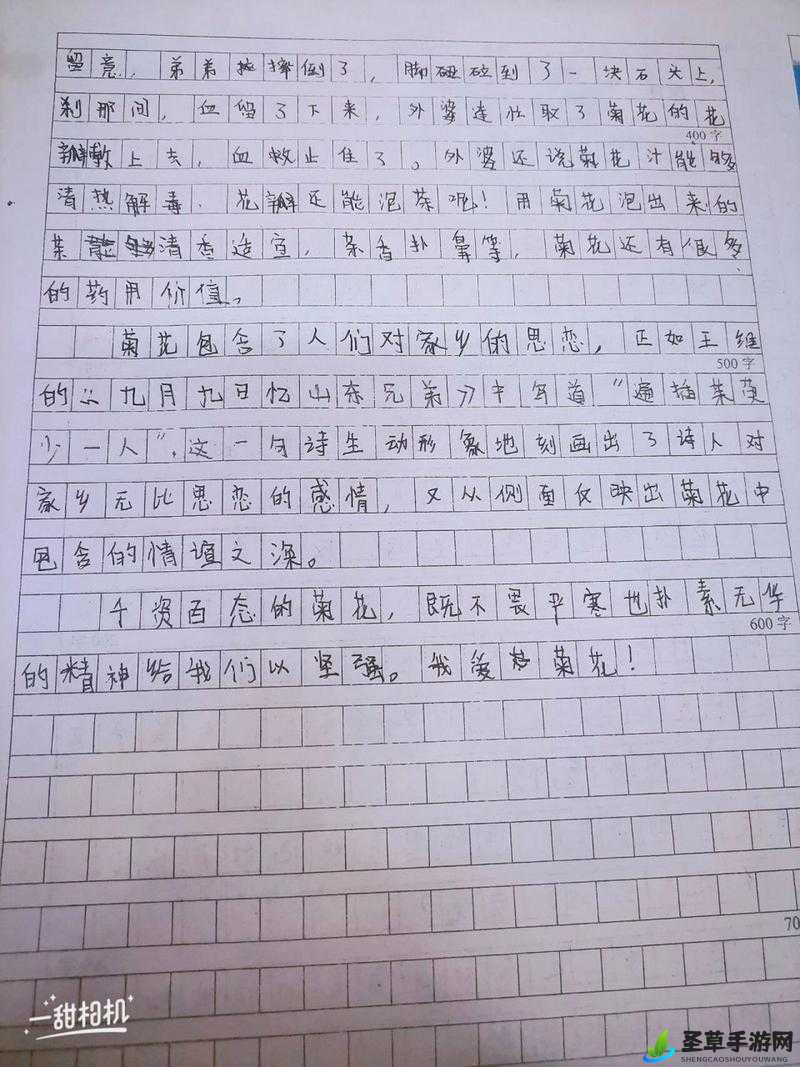 留意，弟弟摔倒了，脚砸到了一块石头上，
刹那间，血留了下来，外婆连忙取了菊花的花
400字
瓣敷上去，血救止住了。外婆还说菊花汁能够
清热解毒．花瓣还能泡茶呢！用菊花泡出来的
茶清香适宜，茶香扑鼻等，菊花还有很多
的药用价值。
菊花包含了人们对家乡的思恋，正如王维
500字
的《九月九日忆山东兄弟》中写道“遍插茱萸
少一人”．这一句诗生动形象地刻画出了诗人对
家乡无比思恋的感情，又从侧面反映出菊花中
包含的情谊之深。
千资百态的菊花，既不畏严寒也扑素无华
600字
的精神给我们以坚强。我爱菊花！
70
一甜相机
圣草手游网
SHENGCAOSHOUYOUWANG